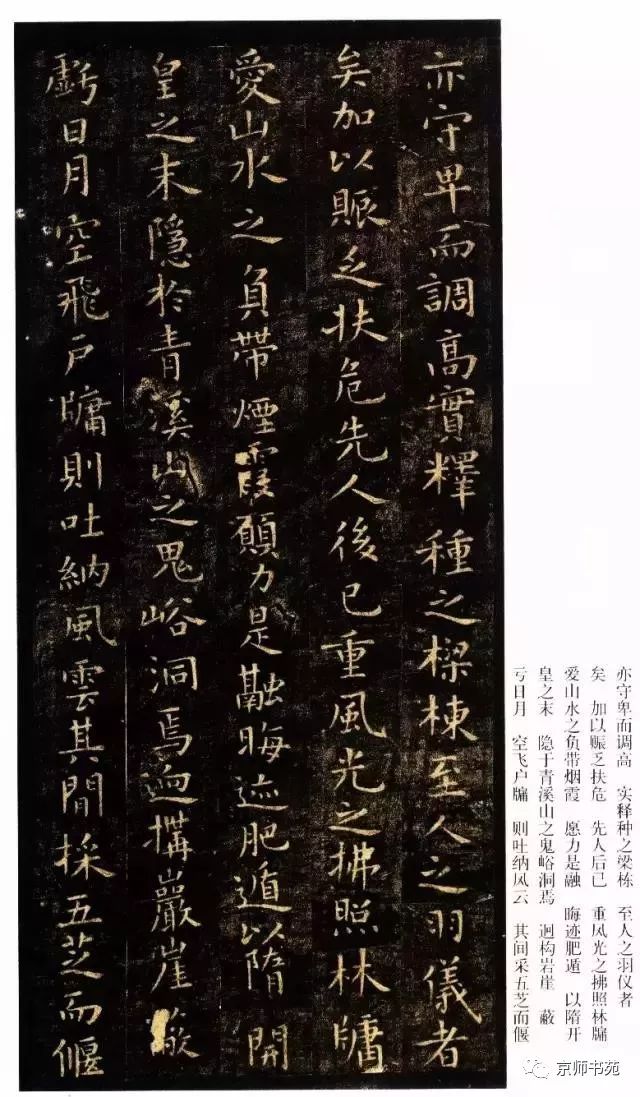 亦守卑而調高實釋種之樑棟至人之羽儀者
矣加以賑乏扶危先人後已重風光之拂照林牗
愛山水之負帶煙霞願力是融晦迹肥遁以隋開
皇之末隱於青溪山之鬼峪洞焉迥構巖崖蔽
虧日月空飛戶牗則吐納風雲其間採五芝而偃
亦守卑而调高 实释种之梁栋 至人之羽仪者
矣 加以赈乏扶危 先人后已 重风光之拂照林牗
爱山水之负带烟霞 愿力是融 晦迹肥遁 以隋开
皇之末 隐于青溪山之鬼峪洞焉 迥构岩崖 蔽
亏日月 空飞户牗 则吐纳风云 其间采五芝而偃
京师书苑